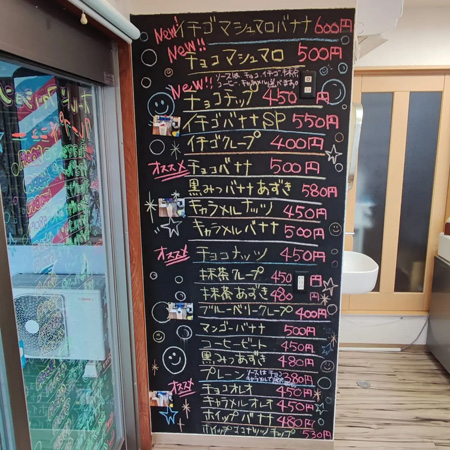 New! イチゴマシュマロバナナ 600円
New!! チョコマシュマロ 500円
ソースは、チョコ、イチゴ、抹茶
コーヒー、キャラメルも選べます!!
New!! チョコチップ 450円
イチゴバナナSP 550円
イチゴクレープ 400円
オススメ チョコバナナ 500円
黒みつバナナあずき 580円
キャラメルナッツ 450円
キャラメルバナナ 500円
オススメ チョコナッツ 450円
抹茶クレープ 450円
抹茶あずき 480円
ブルーベリークレープ 400円
マンゴーバナナ 500円
コーヒービート 450円
黒みつあずき 480円
プレーン 380円
オススメ チョコオレオ 450円
キャラメルオレオ 450円
ホイップバナナ 480円
ホイップココナッツチップ 530円